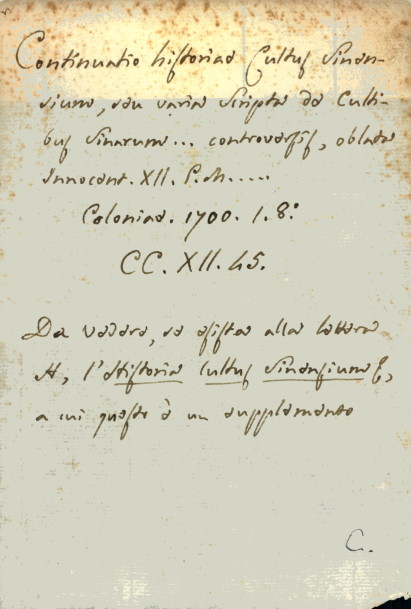 Continuatio historiae Cultus Sinen-
sium, seu varia Scripta de Culti-
bus Sinarum... controversis, oblata
Innocent. XII. P. M.....
Coloniae. 1700. 1. 8.°
CC. XII. 45.
Da vedere, se esiste alla lettera
H, l'Historia Cultus Sinensium,
a cui questo è un supplemento
C.